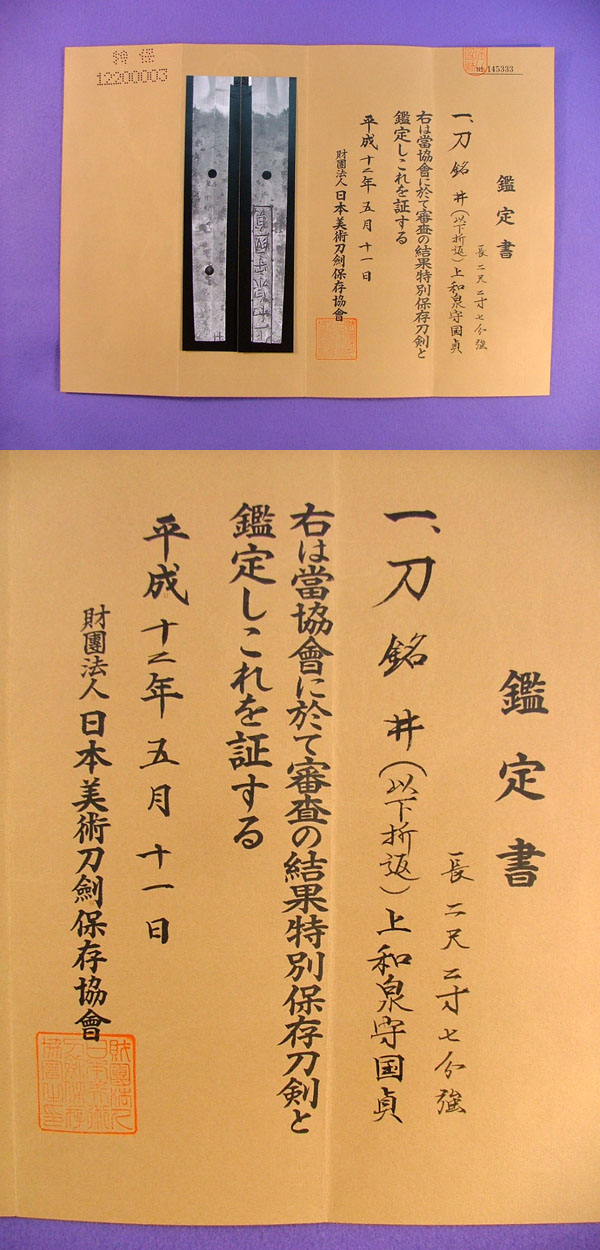 特保
12200003
No 145333
鑑定書
長二尺二寸七分強
一、刀 銘 井(以下折返)上和泉守国貞
右は當協會に於て審査の結果特別保存刀剣と
鑑定しこれを証する
平成十二年五月十一日
財團法人日本美術刀劍保存協會
鑑定書
長二尺二寸七分強
一、刀 銘 井(以下折返)上和泉守国貞
右は當協會に於て審査の結果特別保存刀剣と
鑑定しこれを証する
平成十二年五月十一日
財團法人日本美術刀劍保存協會